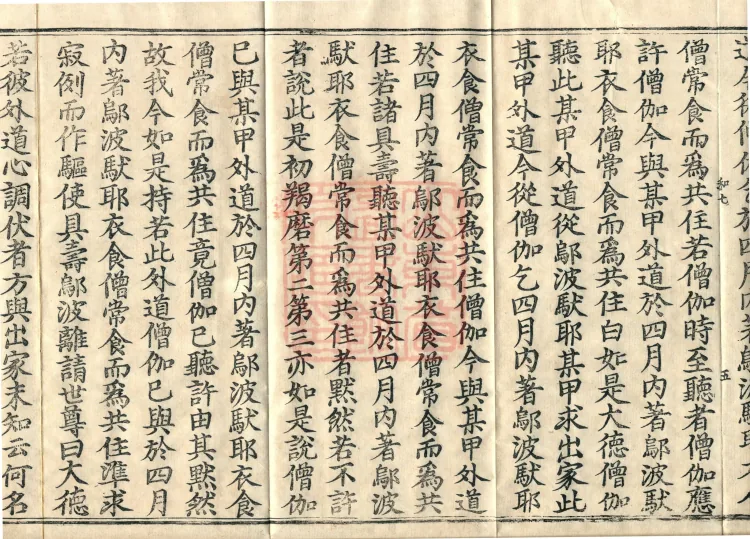 僧常食而爲共住若僧伽時至聽者僧伽應
許僧伽今與某甲外道於四月內著鄔波馱
耶衣食僧常食而爲共住白如是大德僧伽
聽此某甲外道從鄔波馱耶某甲求出家此
某甲外道今從僧伽乞四月內著鄔波馱耶
衣食僧常食而爲共住僧伽今與某甲外道
於四月內著鄔波馱耶衣食僧常食而爲共
住若諸具壽聽某甲外道於四月內著鄔波
馱耶衣食僧常食而爲共住者默然若不許
者說此是初羯磨第二第三亦如是說僧伽
已與某甲外道於四月內著鄔波馱耶衣食
僧常食而爲共住竟僧伽已聽許由其默然
故我今如是持若此外道僧伽已與於四月
內著鄔波馱耶衣食僧常食而爲共住準求
寂例而作驅使具壽鄔波離請世尊曰大德
若彼外道心調伏者方與出家未知云何名